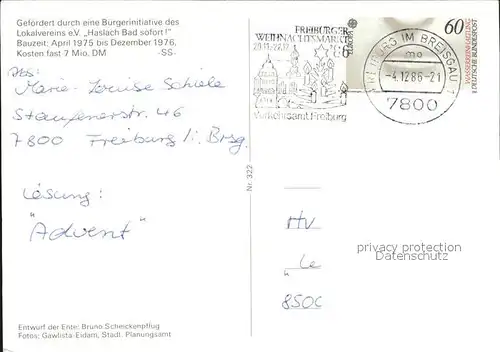 Gefördert durch eine Bürgerinitiative des
Lokalvereins e.V. „Haslach Bad sofort!"
Bauzeit: April 1975 bis Dezember 1976,
Kosten fast 7 Mio. DM -SS-
Abs:
Marie-Louise Schiele
Staufenerstr. 46
7800 Freiburg i. Brsg.
Lösung:
"Advent"
Entwurf der Ente: Bruno Scheickenpflug
Fotos: Gawlista-Eidam, Stadt. Planungsamt
Nr. 322
FREIBURGER
WEIHNACHTSMARKT
Verkehrsamt Freiburg
EUROPA
60
DEUTSCHE BUNDESPOST
FREIBURG IM BREISGAU 1
mo
-4.12.86-21
7800
HV
„Le
8500
privacy protection
Datenschutz